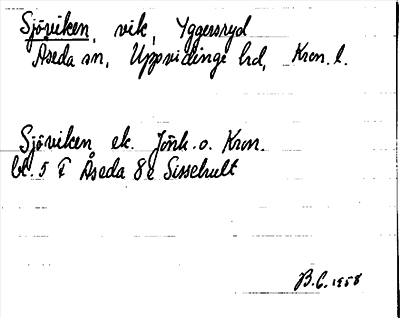 Sjöviken, vik, Yggersryd
Åseda sn, Uppvidinge hd, Kron. l.
Sjöviken ek. Jönk. o. Kron.
bl. 5 T Åseda 8 e Sissehult
B.C. 1958